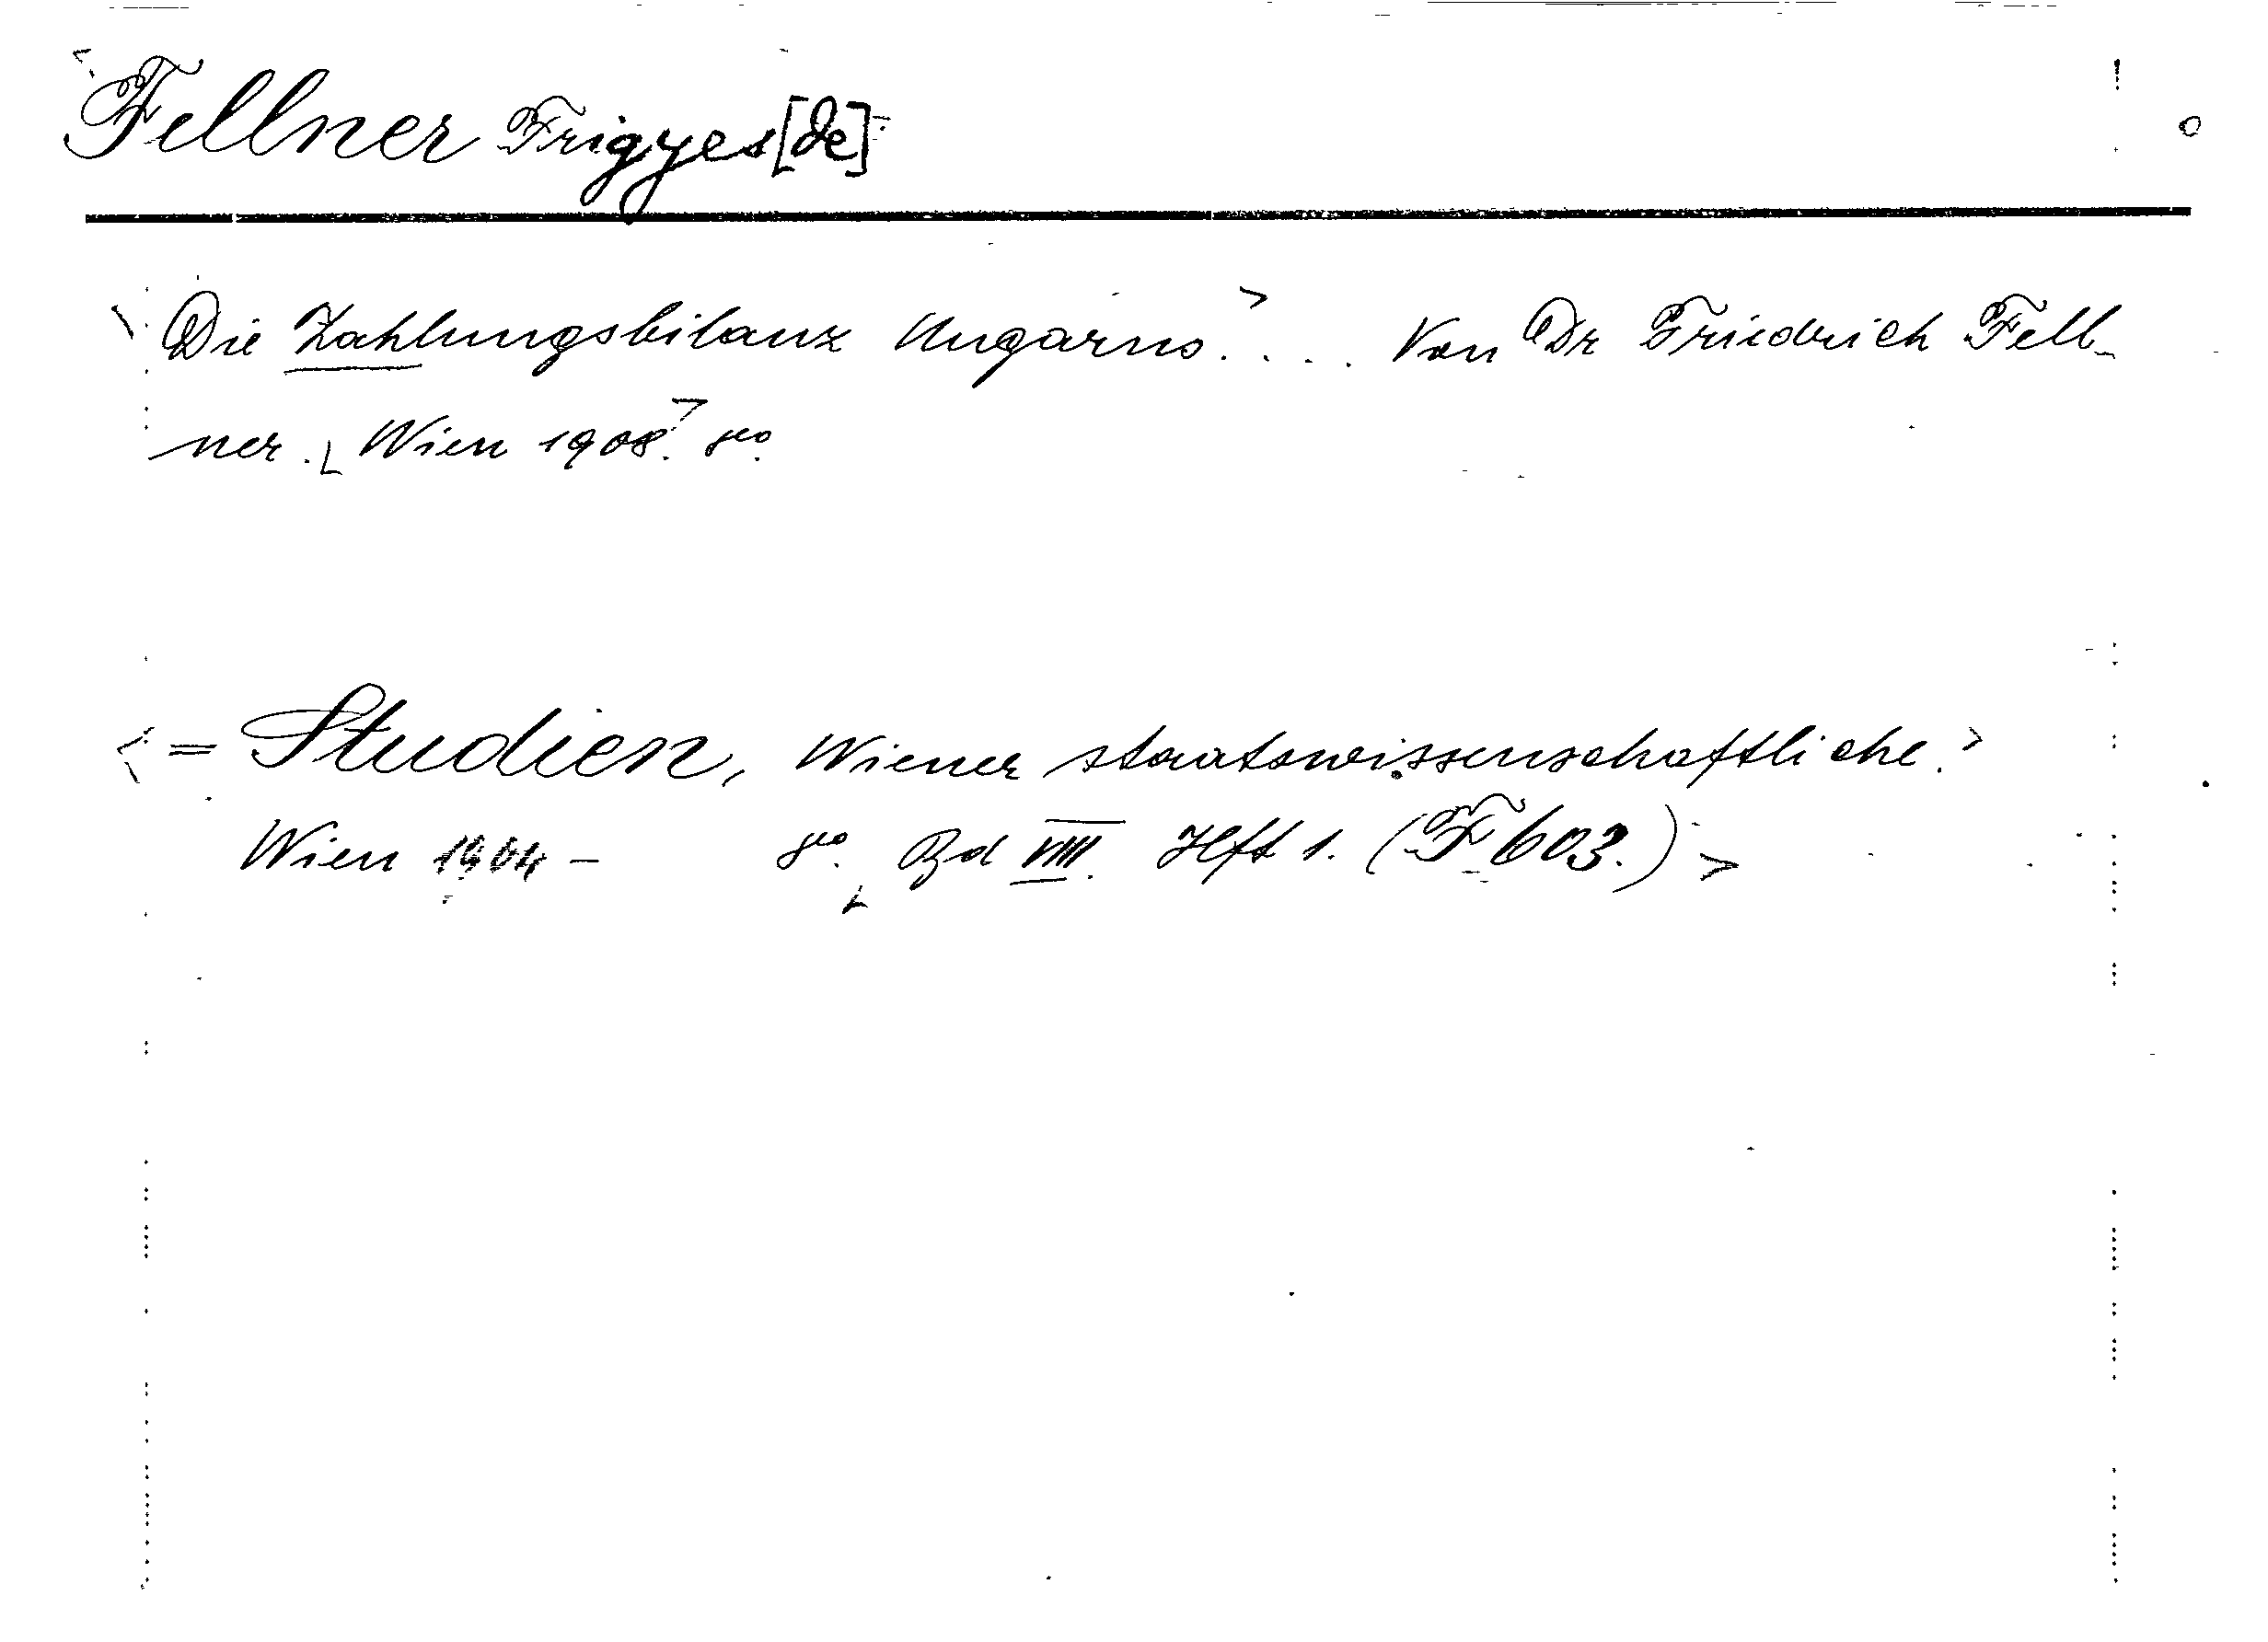 Fellner Frigyes [de]
Die Zahlungsbilanz Ungarns. . . . Von Dr Friedrich Fell-
ner. Wien 1908. 8º.
= Studien, Wiener staatswissenschaftliche.
Wien 1904 – 8º. Bd VIII. Hft 1. (F 603.)